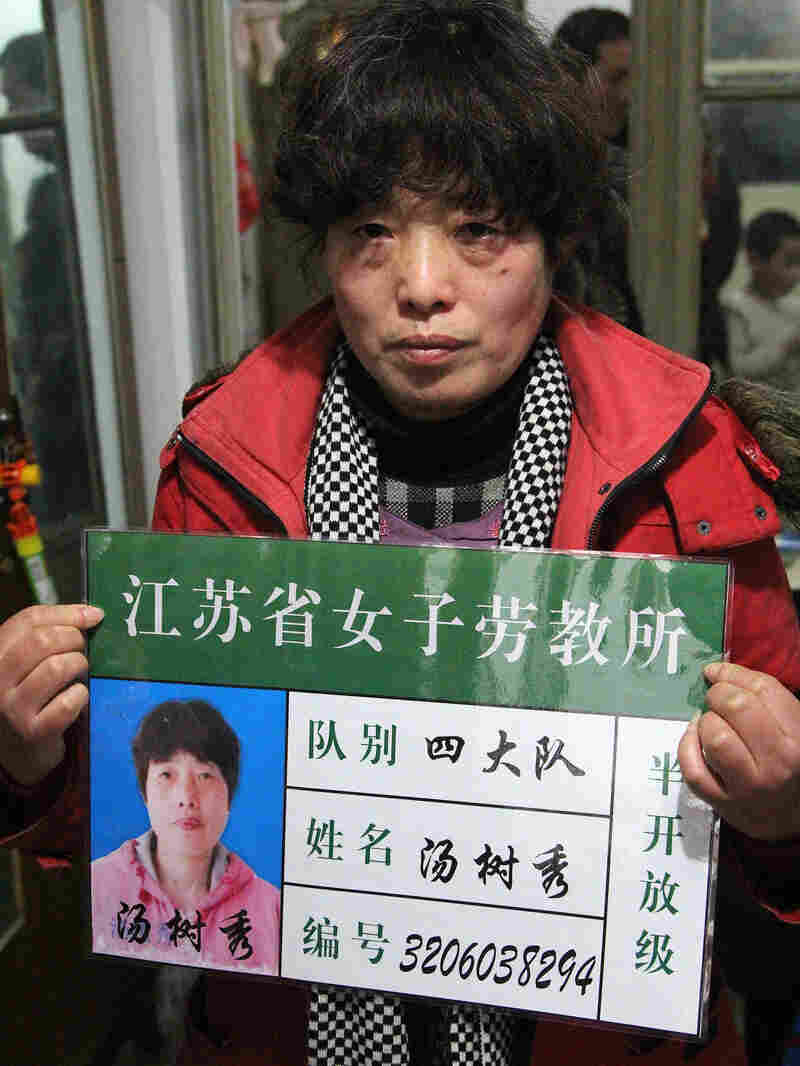 江苏省女子劳教所
队别 四大队
姓名 汤树秀
编号 3206038294
半开放级
汤树秀